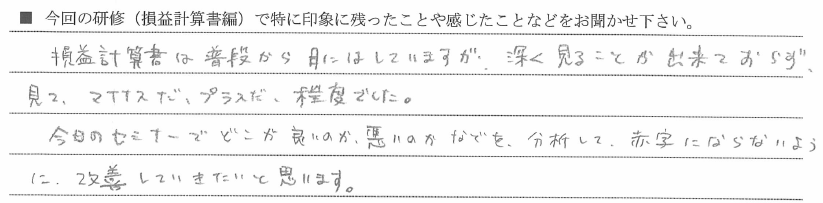 ■ 今回の研修（損益計算書編）で特に印象に残ったことや感じたことなどをお聞かせ下さい。
損益計算書は普段から目にはしていますが、深く見ることが出来ておらず、
見て、マイナスだ、プラスだ、程度でした。
今日のセミナーでどこが良いのか、悪いのかなどを、分析して、赤字にならないよう
に、改善していきたいと思います。